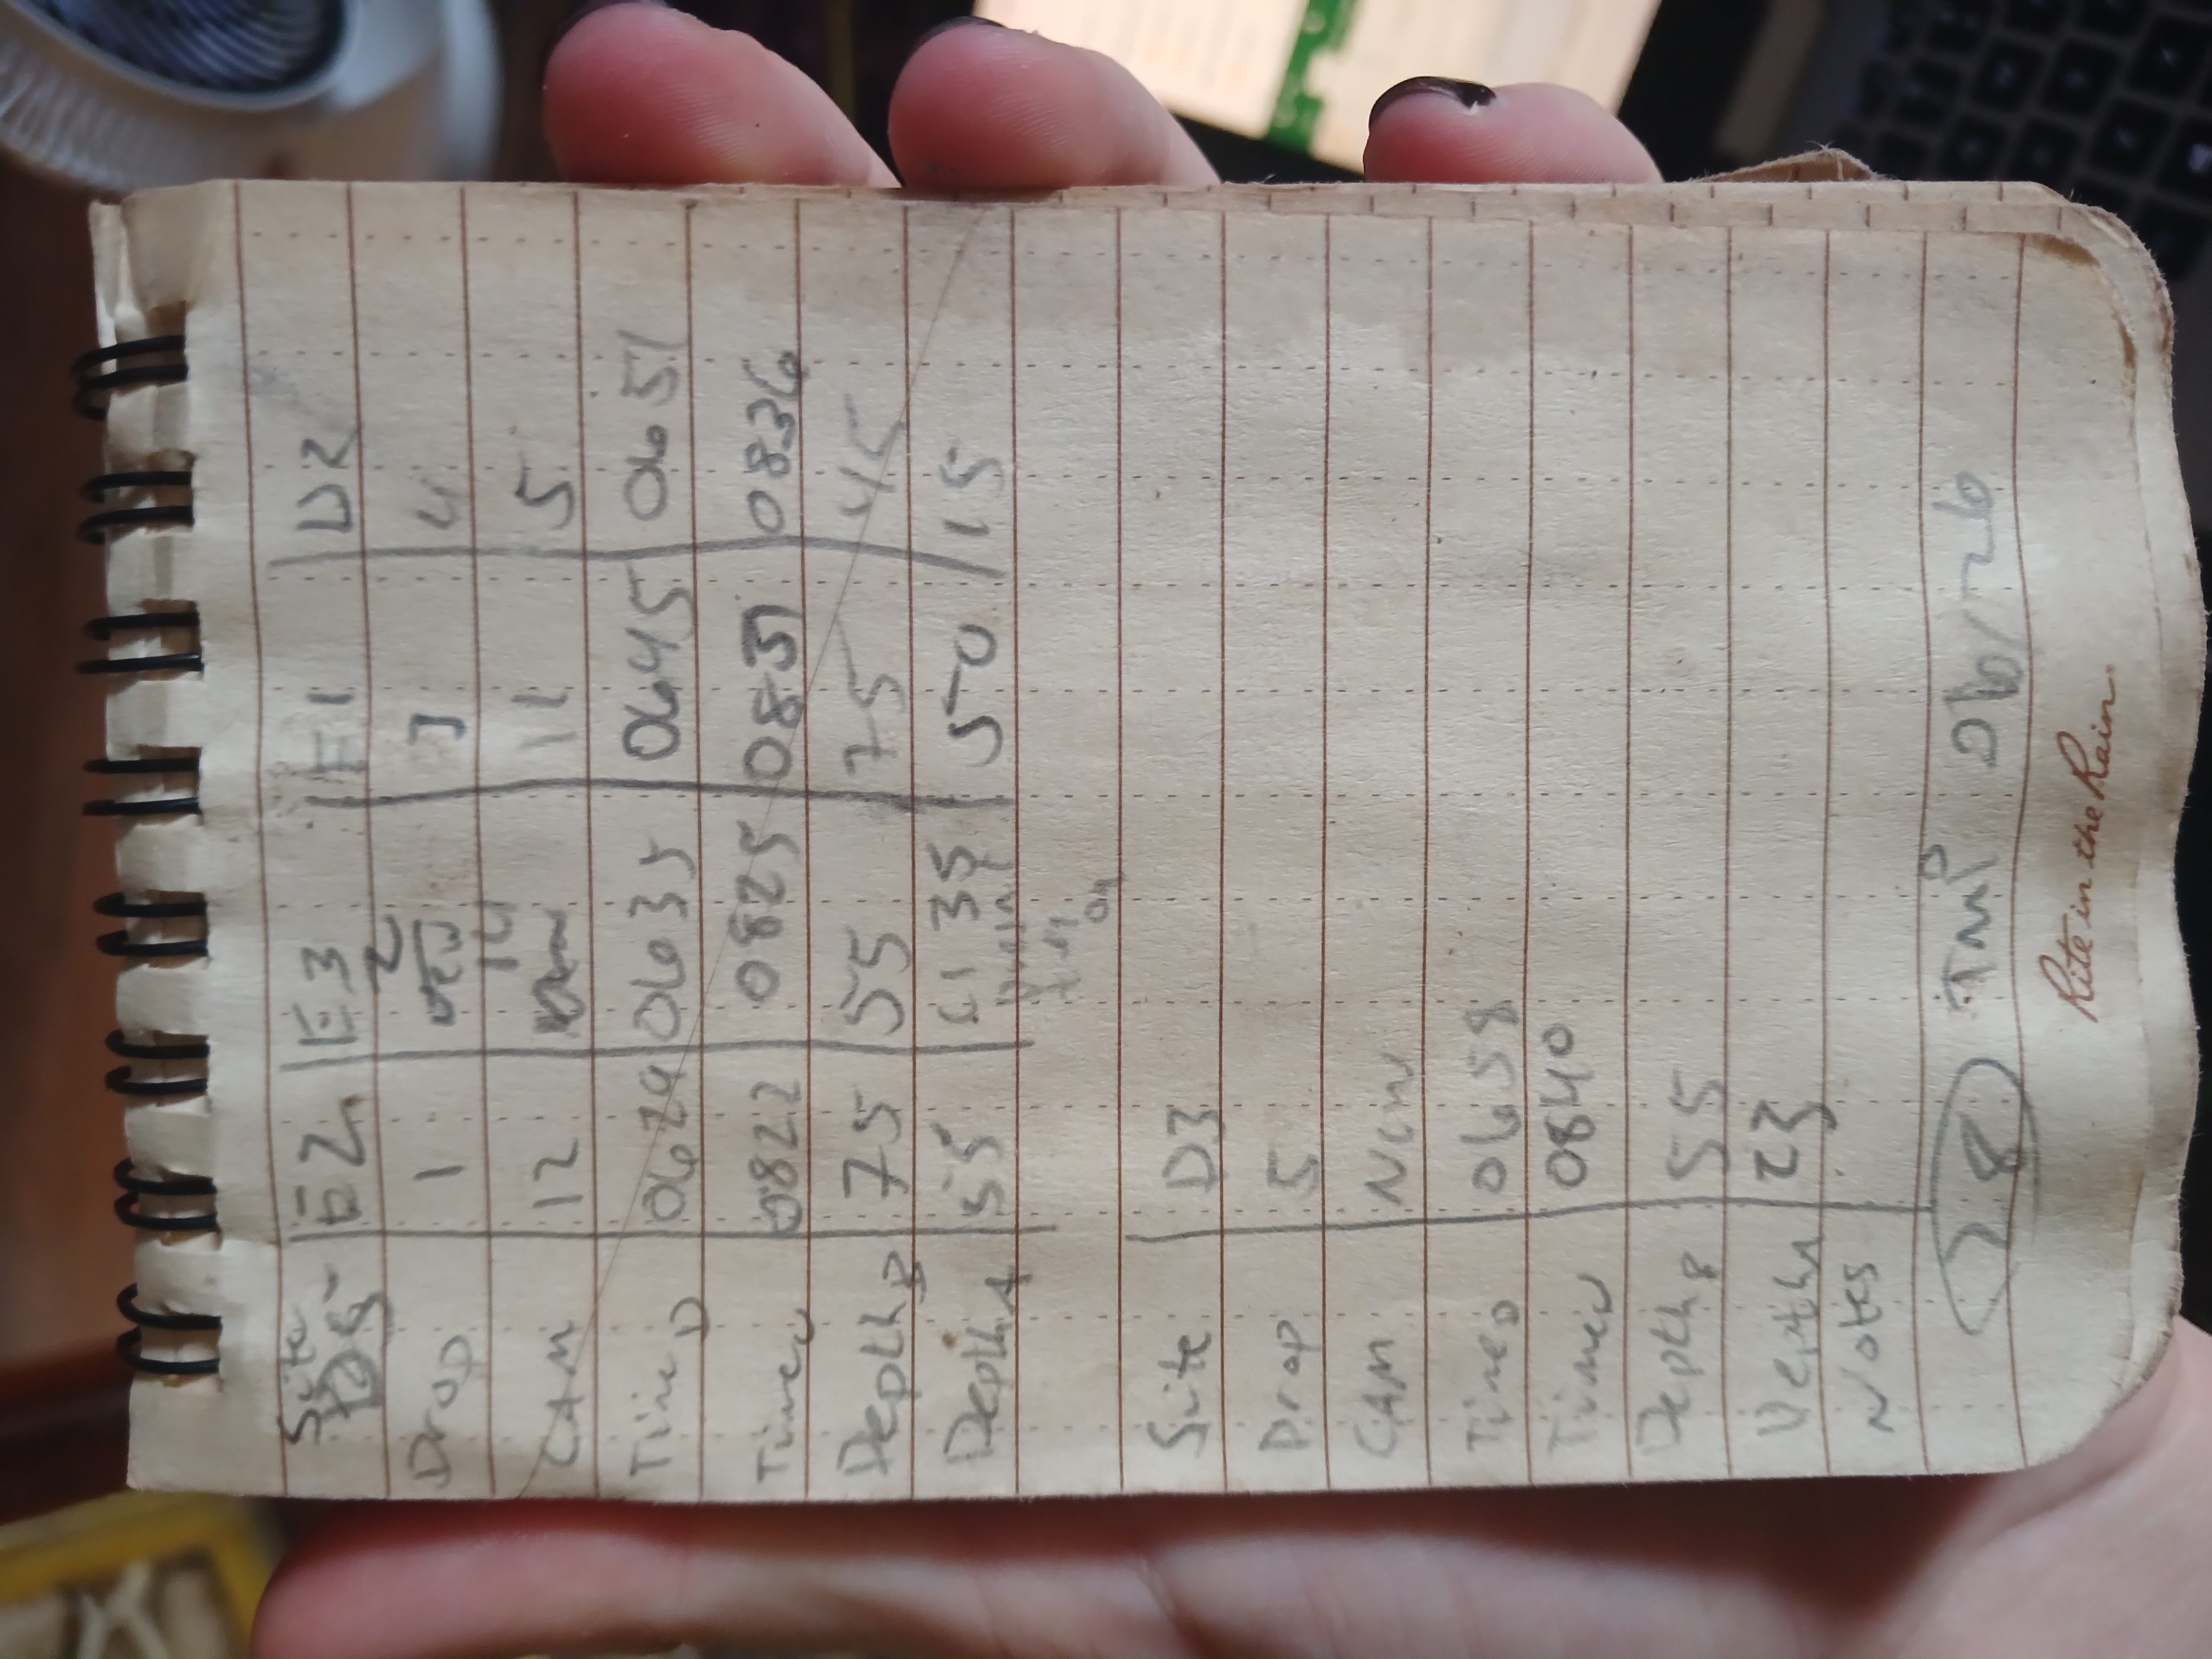 Site E2 E3 E1 D2
2
Drop 1 3 4
14
CAM 12 11 5
Time D 0629 0635 0645 0651
Time U 0822 0825 0831 0836
Depth B 75 55 75 45
Depth A 55 35 50 15
Site D3
Drop 5
CAM New
Time D 0658
Time U 0840
Depth B 55
Depth A 23
Notes
28 06/26
Rite in the Rain